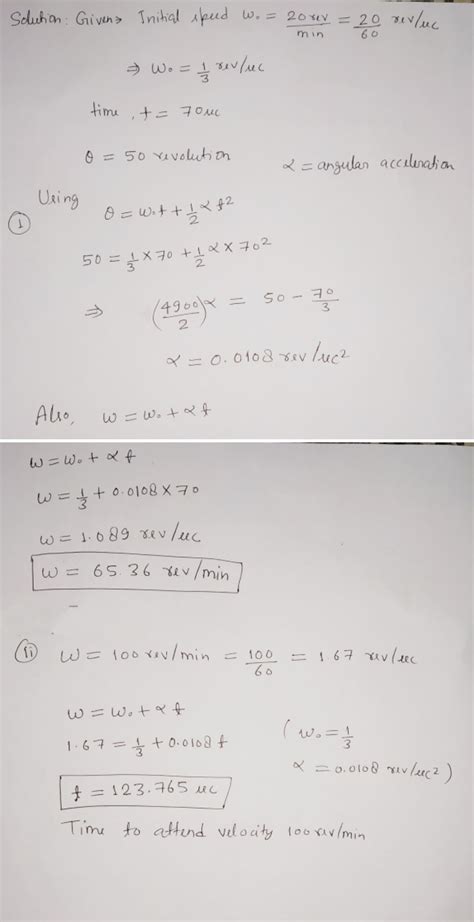 Solution: Given⇒ Initial speed ω₀ = 20 rev/min = 20/60 rev/sec
⇒ ω₀ = 1/3 rev/sec
time, t = 70 sec
θ = 50 revolution
α = angular acceleration
① Using
θ = ω₀t + 1/2 α t²
50 = 1/3 × 70 + 1/2 α × 70²
⇒ (4900/2) α = 50 − 70/3
α = 0.0108 rev/sec²
Also, ω = ω₀ + α t
ω = ω₀ + α t
ω = 1/3 + 0.0108 × 70
ω = 1.089 rev/sec
ω = 65.36 rev/min
(ii) ω = 100 rev/min = 100/60 = 1.67 rev/sec
ω = ω₀ + α t
1.67 = 1/3 + 0.0108 t
( ω₀ = 1/3
α = 0.0108 rev/sec²)
t = 123.765 sec
Time to attend velocity 100 rev/min